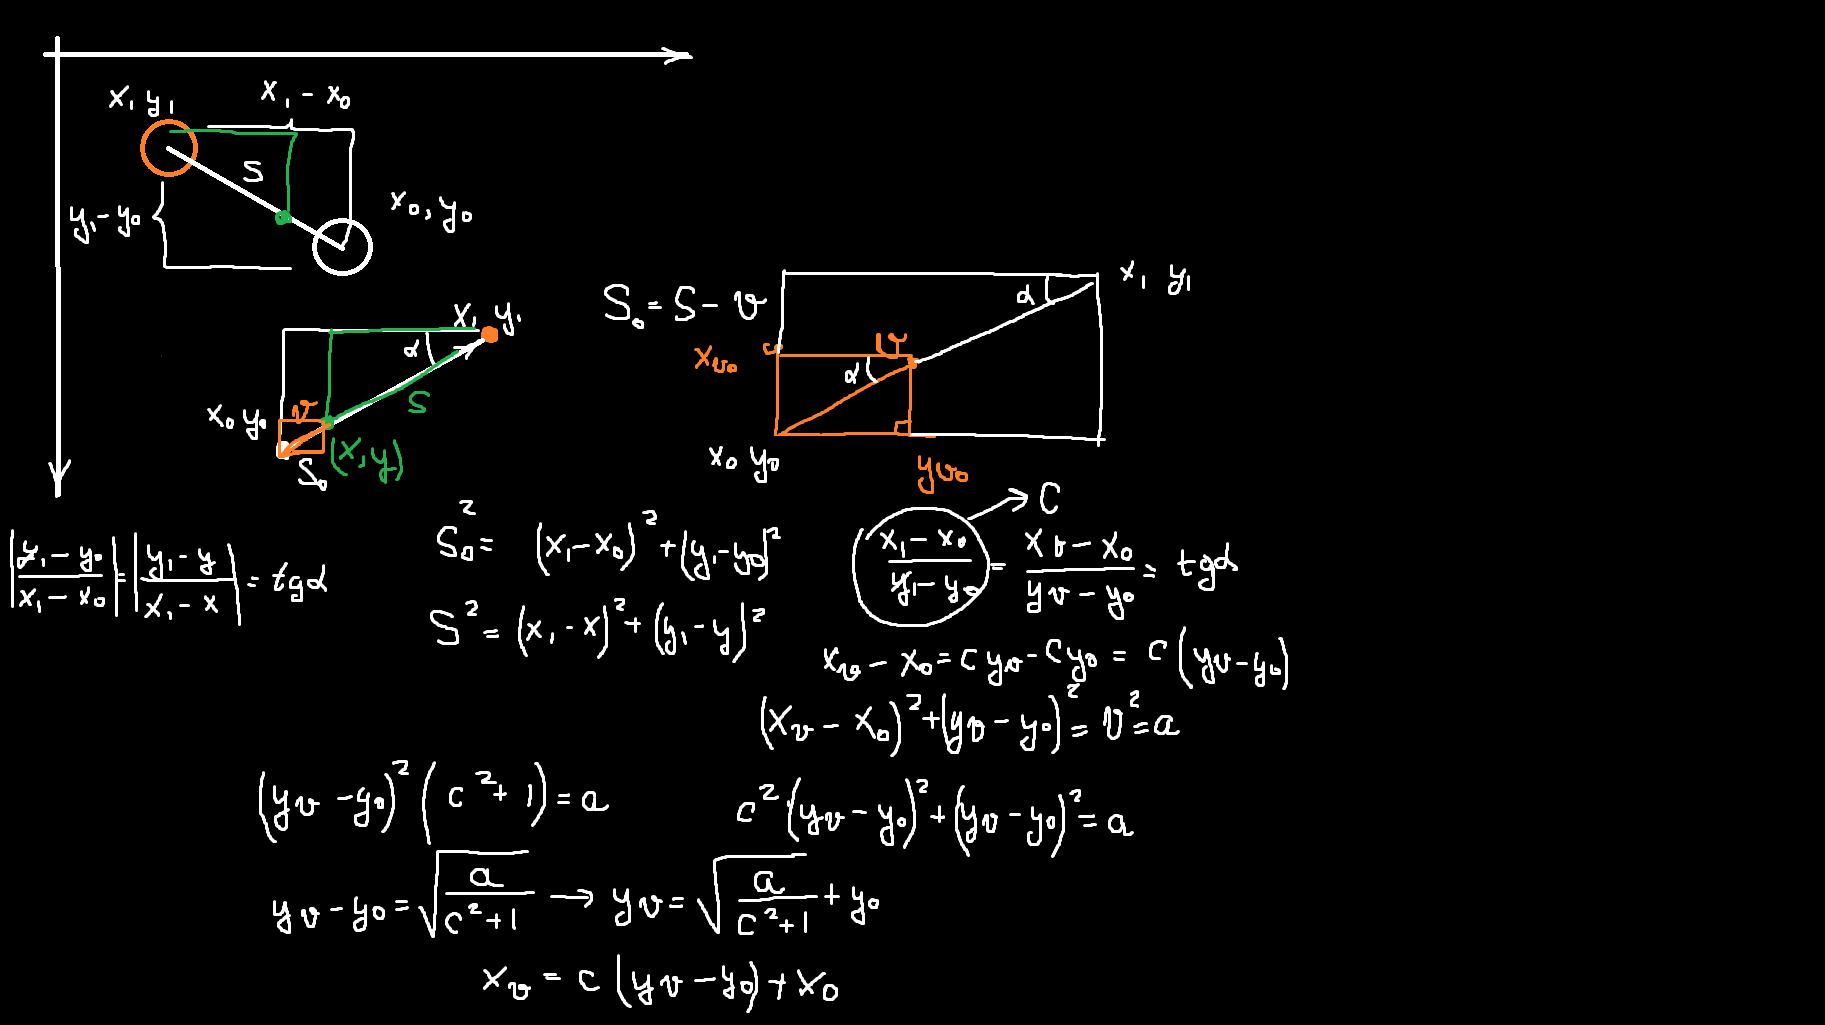 x₁ y₁
x₁ - x₀
S
y₁ - y₀
x₀, y₀
x₁ y₁
α
S
x₀ y₀
v
(x, y)
S₀
S₀ = S - v
x₁ y₁
α
x_v₀
v
α
x₀ y₀
y_v₀
|(y₁ - y₀)/(x₁ - x₀)| = |(y₁ - y)/(x₁ - x)| = tgα
S₀² = (x₁ - x₀)² + (y₁ - y₀)²
S² = (x₁ - x)² + (y₁ - y)²
C
(x₁ - x₀)/(y₁ - y₀) = (x_v - x₀)/(y_v - y₀) = tgα
x_v - x₀ = c y_v - c y₀ = c (y_v - y₀)
(x_v - x₀)² + (y_v - y₀)² = v² = a
c² (y_v - y₀)² + (y_v - y₀)² = a
(y_v - y₀)² (c² + 1) = a
y_v - y₀ = √(a/(c² + 1)) → y_v = √(a/(c² + 1)) + y₀
x_v = c (y_v - y₀) + x₀